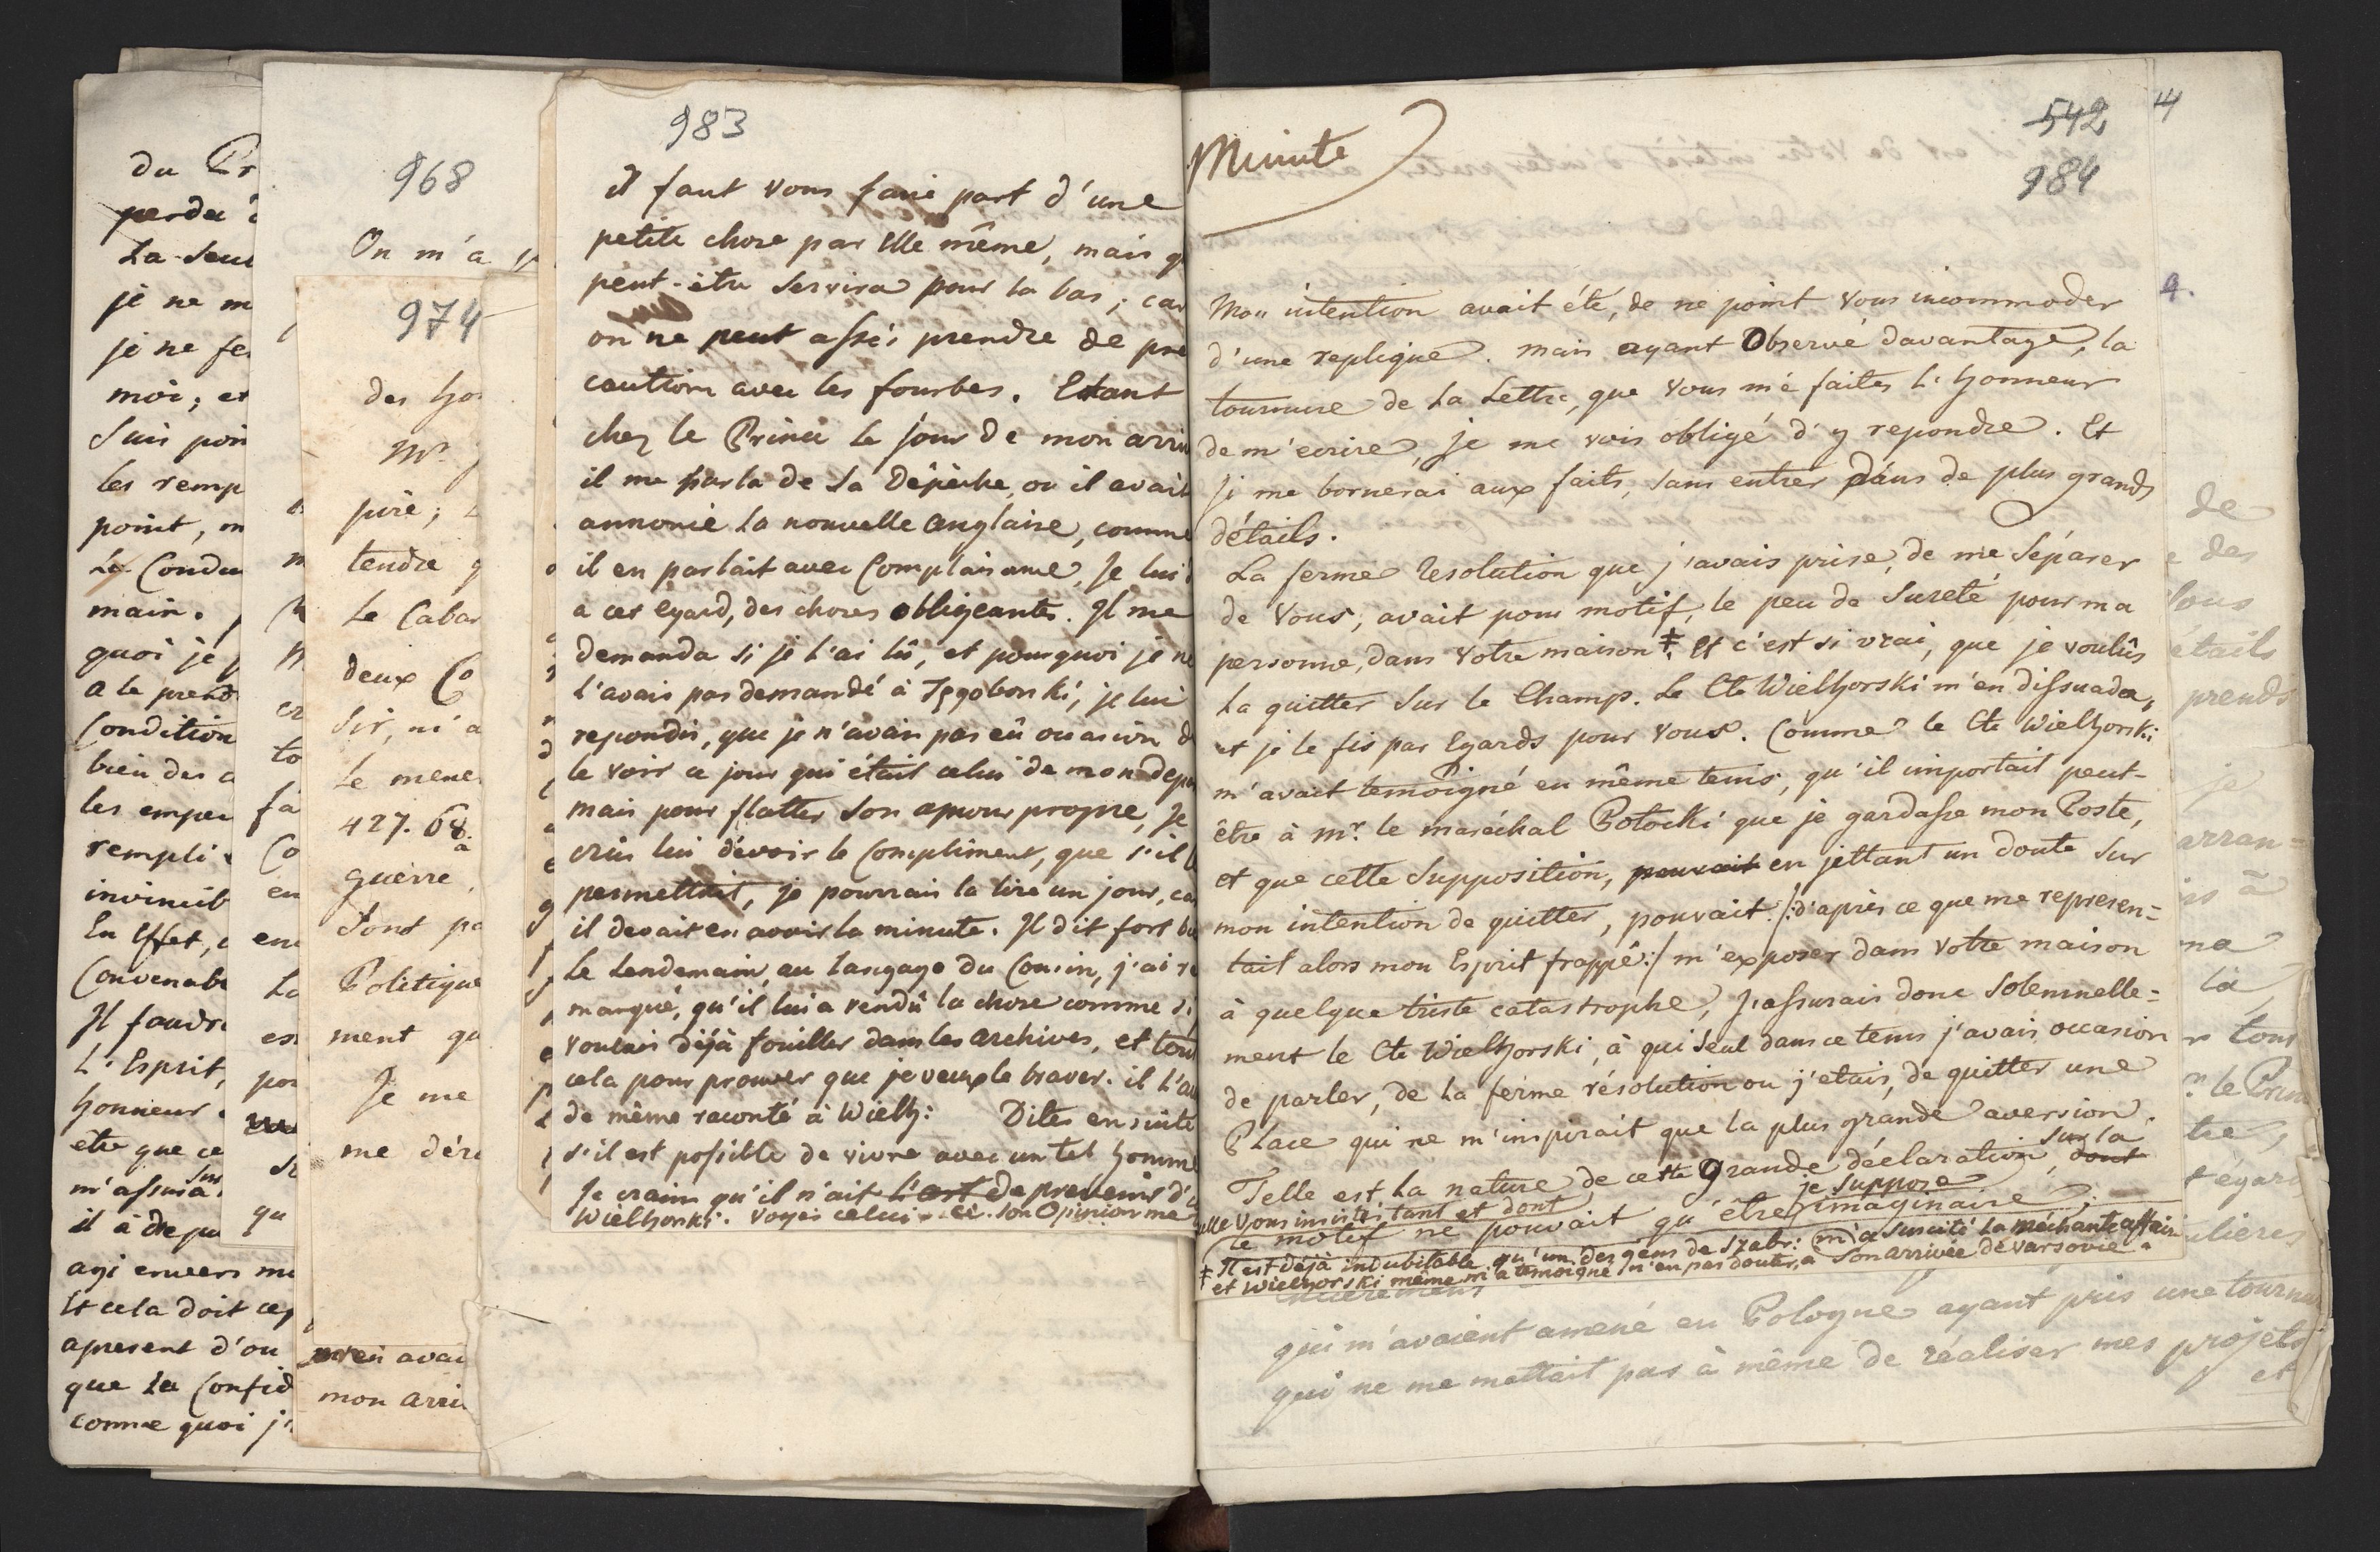 du Pr
perdu
La Seu
je ne m
je ne fe
moi; et
Suis poin
les remp
point, m
Le Condu
main.
quoi je
a le prend
Condition
bien des
les empe
rempli
invincib
En Effet,
Convenab
Il faudr
L'Esprit,
honneur
etre que ce
sur
m'assura
il à de pu
agi envers m
Et cela doit cep
apresent d'ou
que la Confid
comme quoi j'
968
On m'a
to
fa
Co
en
en
La
es
pou
qu
974
des ho
Mr.
juré;
tendre q
Le Cabar
deux Co
Sir, m'a
Le mene
427. 68.
a
guerre
Sont pa
Politique
ment qu
Je me
me dér
en avai
mon arri
983
il faut vous faire part d'une
petite chose par Elle même, mais q
peut-être Servira pour la bas; car
on ne peut assés prendre de pre
caution avec les fourbes. Etant
chez le Prince le jour de mon arriv
il me parla de Sa Dépèche, ou il avait
annoncé la nouvelle anglaise, comme
il en parlait avec Complaisance, Je lui
a cet égard, des choses obligeantes. Il me
demanda si je l'ai lû, et pourquoi je ne
l'avais pas demandé à Zgobonski, je lui
repondis, que je n'avais pas eû occasion d
le voir ce jour qui était celui de mon depa
mais pour flatter Son amour propre, Je
crûs lui devoir le Compliment, que s'il l
permettait, je pourrais la lire un jour, ca
il devait en avoir la minute. Il dit fort b
Le Lendemain, au langage du Cousin, j'ai re
marqué, qu'il lui a rendû la chose comme si
voulais déjà fouiller dans les archives, et tout
cela pour prouver que je veux le braver. il l'a
de même raconté à Wielh: Dites ensuite
s'il est possible de vivre avec un tel homme
Je crains qu'il n'ait l'art de prevenir d'
Wielhorski. voyés celui-ci. Son Opinion me
Minute
542
984
Mon intention avait été, de ne point Vous incommoder
d'une replique. mais ayant Observé davantage, la
tournure de la Lettre, que Vous m'é faites l'honneur
de m'ecrire, je me vois obligé d'y repondre. Et
je me bornerai aux faits, sans entrer dans de plus grands
détails.
La ferme Resolution que j'avais prise, de me Séparer
de Vous, avait pour motif, le peu de Sureté pour ma
personne, dans Votre maison ‡. Et c'est si vrai, que je voulûs
la quitter Sur le Champ. Le Cte Wielhorski m'en dissuada,
et je le fis par Egards pour Vous. Comme le Cte Wielhorski
m'avait temoigné en même tems, qu'il importait peut-
être à Mr. le maréchal Potocki que je gardasse mon Poste,
et que cette Supposition, pouvait en jettant un doute Sur
mon intention de quitter, pouvait /:d'après ce que me represen=
tait alors mon Esprit frappé:/ m'exposer dans Votre maison
à quelque triste catastrophe, j'assurais donc Solemnelle=
ment le Cte Wielhorski, à qui Seul dans ce tems j'avais occasion
de parler, de la ferme résolution ou j'etais, de quitter une
Place qui ne m'inspirait que la plus grande aversion.
Telle est la nature de cette Grande déclaration, dont sur la
quelle Vous insistés tant et dont je suppose
le motif ne pouvait qu'être imaginaire;
‡ Il est déjà indubitable qu'un des gens de Szabr: m'a suscité la méchante affaire
et Wielhorski même m'a temoigné n'en pas douter, à son arrivée de Varsovie.
qui m'avaient amené en Pologne ayant pris une tournu
qui ne me mettait pas à même de réaliser mes projets
et
4
9.
de
des
Vous
étails
prends
je
arran=
is à
ne
là
tous
le Prin
tre,
égar
lieres